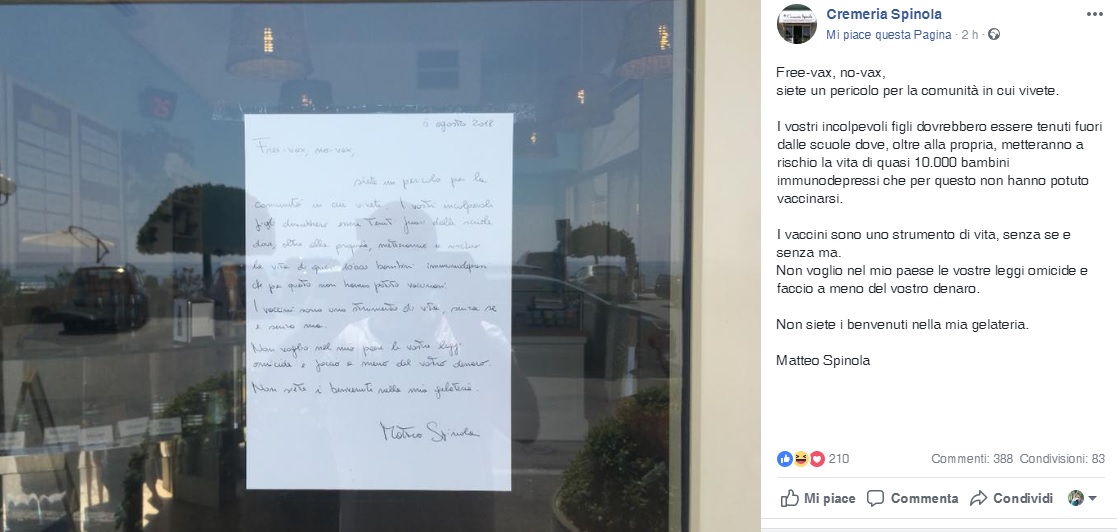 6 agosto 2018
Free-vax, no-vax,
siete un pericolo per la
comunità in cui vivete. I vostri incolpevoli
figli dovrebbero essere tenuti fuori dalle scuole
dove, oltre alla propria, metteranno a rischio
la vita di quasi 10.000 bambini immunodepressi
che per questo non hanno potuto vaccinarsi.
I vaccini sono uno strumento di vita, senza se
e senza ma.
Non voglio nel mio paese le vostre leggi
omicide e faccio a meno del vostro denaro.
Non siete i benvenuti nella mia gelateria.
Matteo Spinola
Cremeria Spinola
Mi piace questa Pagina · 2 h ·
Free-vax, no-vax,
siete un pericolo per la comunità in cui vivete.
I vostri incolpevoli figli dovrebbero essere tenuti fuori
dalle scuole dove, oltre alla propria, metteranno a
rischio la vita di quasi 10.000 bambini
immunodepressi che per questo non hanno potuto
vaccinarsi.
I vaccini sono uno strumento di vita, senza se e
senza ma.
Non voglio nel mio paese le vostre leggi omicide e
faccio a meno del vostro denaro.
Non siete i benvenuti nella mia gelateria.
Matteo Spinola
210
Commenti: 388 Condivisioni: 83
Mi piace Commenta Condividi